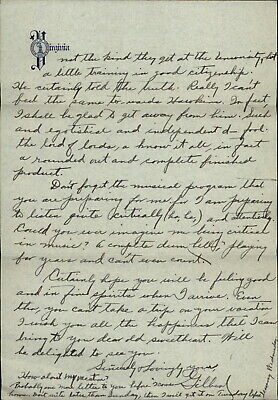 Virginia
not the kind they get at the University, but
a little training in good citizenship.
He certainly told the truth. Really I can't
feel the same towards Hawkins. In fact,
I shall be glad to get away from him. Such
and egotistical and independent d- fool.
The lord of lords, a know it all, in fact
a rounded out and complete finished
product.
Don't forget the musical program that
you are preparing for me for I am preparing
to listen quite critically (ha, ha,) and
Could you ever imagine me being critical
in music? A complete dumb bell, playing
for years and can't even count.
Certainly hope you will be feeling good
and in fine spirits when I arrive. Even
tho, you can't take a trip on your vacation
I wish you all the happiness that I can
bring to you dear old sweetheart. Will
be delighted to see you.
Sincerely & Lovingly yours,
How about my vacation
Probably one more letter to you before I come
home. Dont write later than Sunday, then I will get it on Tuesday before
I leave Wednesday